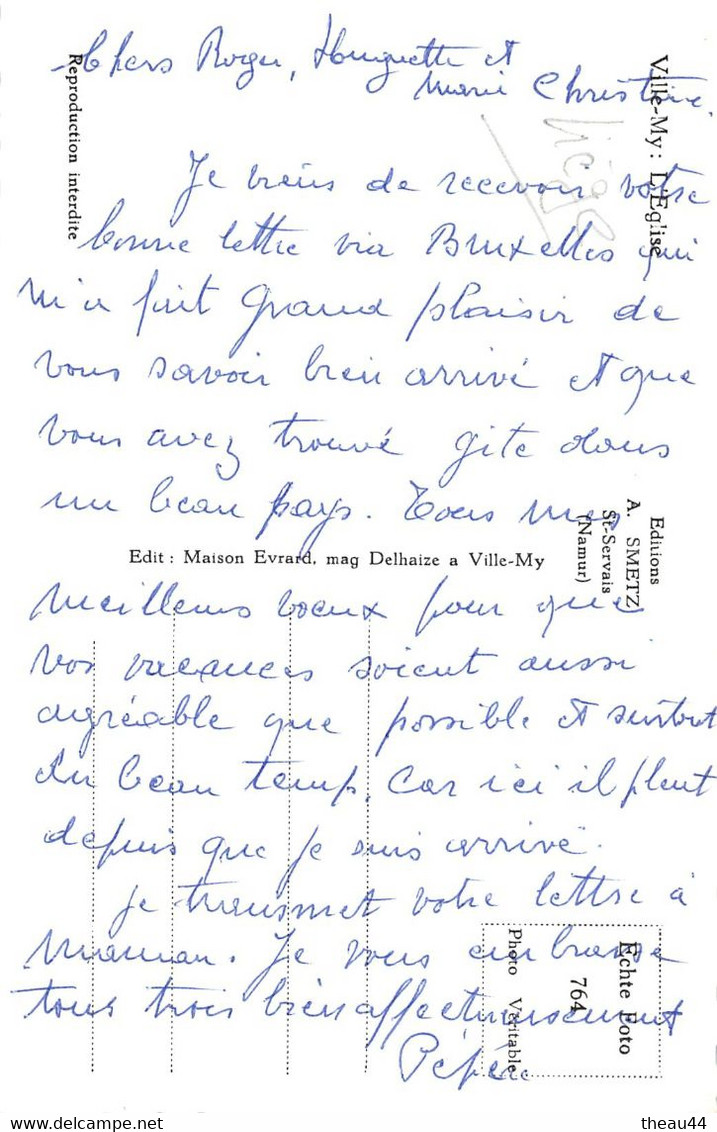 Chers Roger, Huguette et
Marie Christine.
Je viens de recevoir votre
bonne lettre via Bruxelles qui
m'a fait grand plaisir de
vous savoir bien arrivé et que
vous avez trouvé gite dans
un beau pays. Tous mes
meilleurs voeux pour que
vos vacances soient aussi
agréable que possible et surtout
du beau temps. Car ici il pleut
depuis que je suis arrivé.
Je transmet votre lettre à
maman. Je vous embrasse
tous trois bien affectueusement
Pépère
Liège
Ville-My: L'Eglise
Reproduction interdite
Editions
A. SMETZ
St-Servais
(Namur)
Edit : Maison Evrard, mag Delhaize a Ville-My
Echte Foto
764
Photo Véritable
delcampe.net
theau44